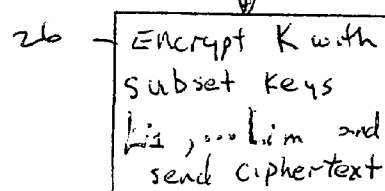 26
Encrypt K with
subset keys
Li1,...Lim and
send ciphertext